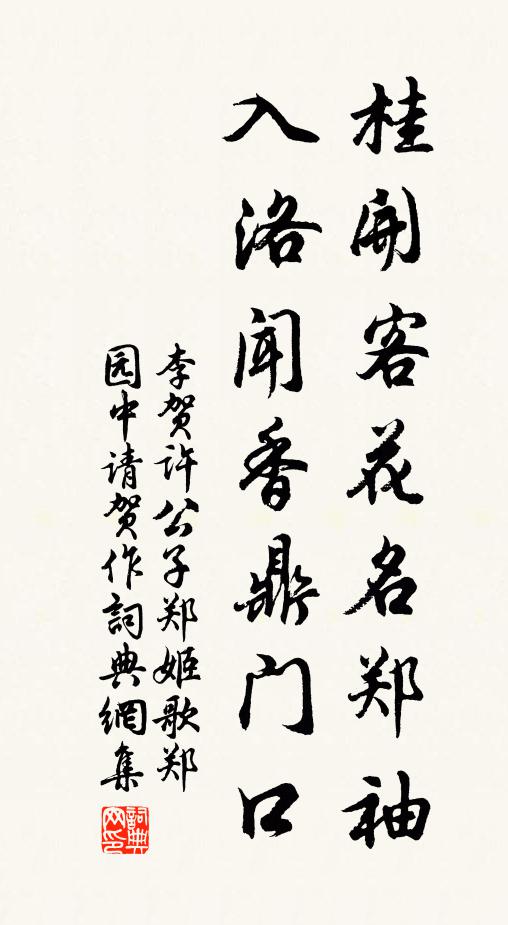 桂開客花名郑袖
入洛闻香鼎门口
李贺許公子郑姬歌郑
园中请贺作詞典網集
詞典
网印